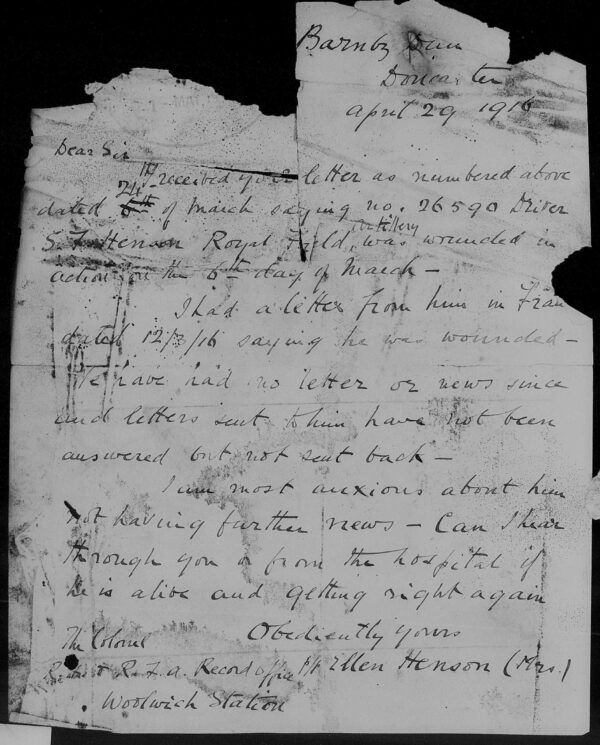 Barnby Dun
Doncaster
April 29 1916
Dear Sir
I received your letter as numbered above
dated 6th 24 of March saying no. 26590 Driver
S. F. Henson Royal Field Artillery, was wounded in
action on the 6th day of March —
I had a letter from him in Fran
dated 12/3/16 saying he was wounded —
We have had no letter or news since
and letters sent to him have not been
answered but not sent back —
I am most anxious about him
not having further news — Can I hear
through you or from the hospital if
he is alive and getting right again
Obediently yours
Ellen Henson (Mrs.)
The Colonel
R. F. A. Record Office
Woolwich Station